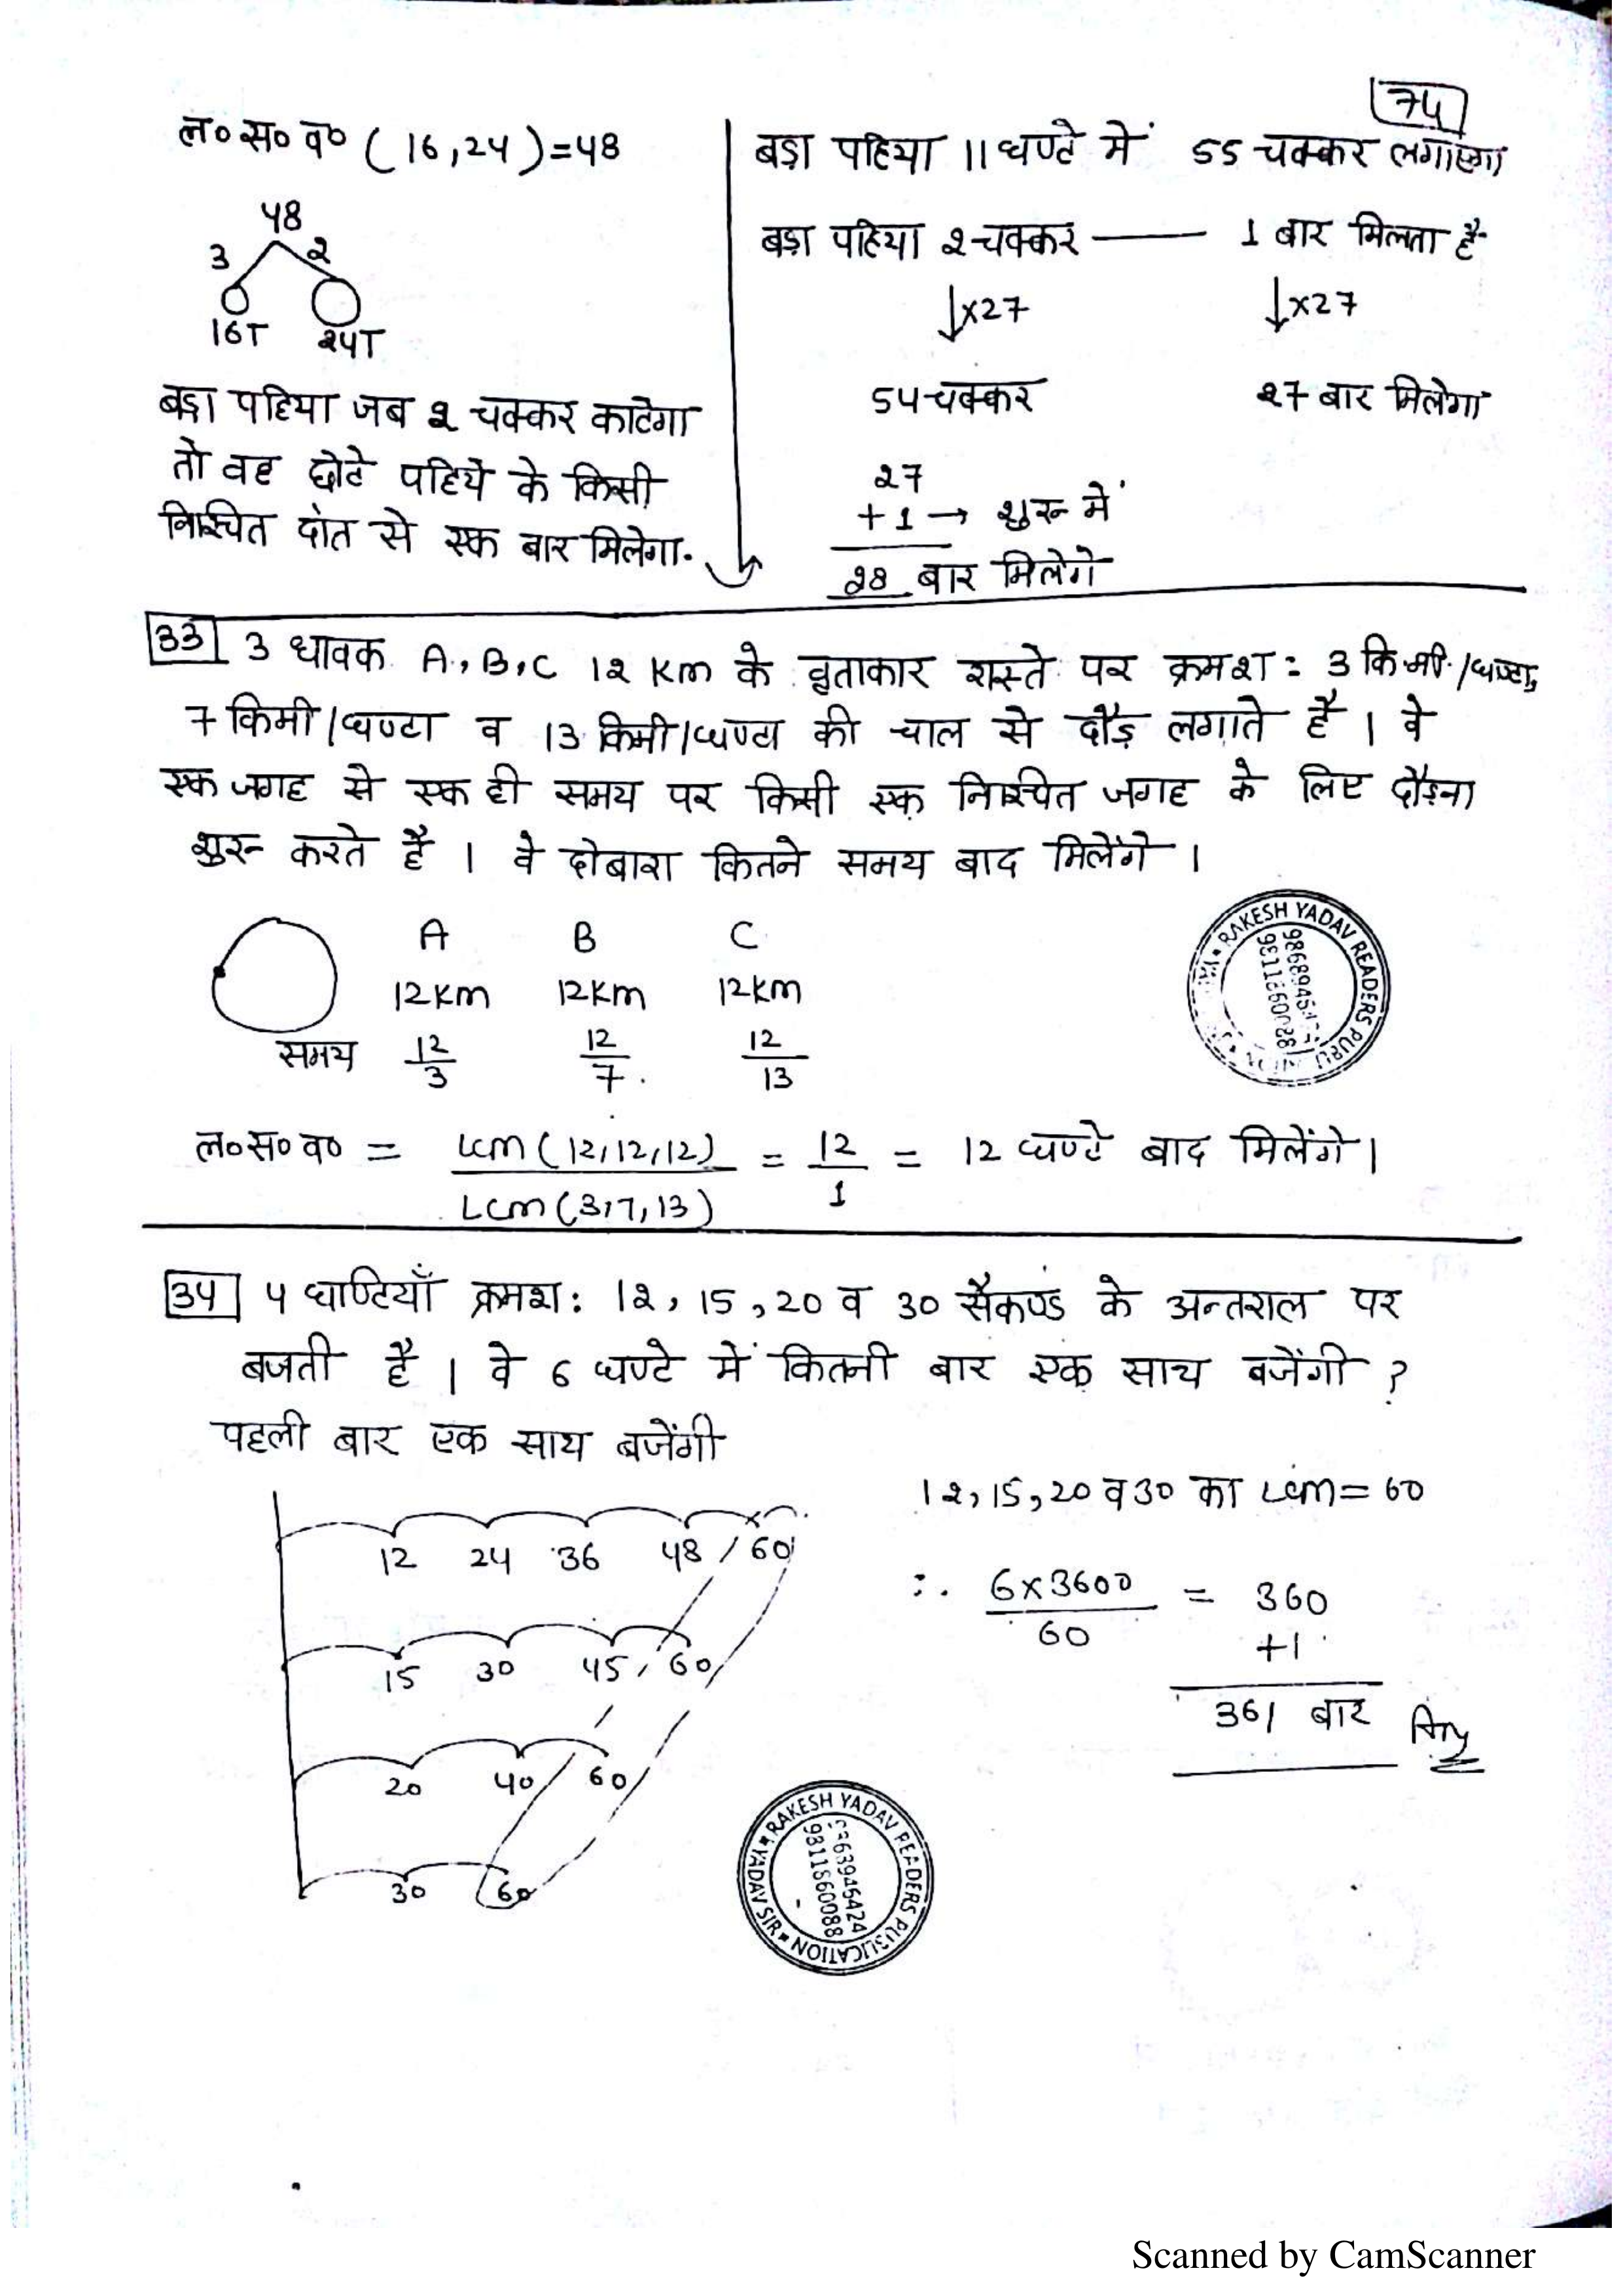 74
ल०स०व० (16,24)=48
48
3 2
16T 24T
बड़ा पहिया जब 2 चक्कर काटेगा
तो वह छोटे पहिये के किसी
निश्चित दांत से एक बार मिलेगा.
बड़ा पहिया 11 घण्टे में 55 चक्कर लगाएगा
बड़ा पहिया 2 चक्कर —— 1 बार मिलता है
↓x27 ↓x27
54 चक्कर 27 बार मिलेगा
27
+1 → शुरू में
28 बार मिलेगें
33 3 धावक A, B, C 12 Km के वृताकार रास्ते पर क्रमश: 3 कि.मी./घण्टा,
7 किमी/घण्टा व 13 किमी/घण्टा की चाल से दौड़ लगाते है । वे
एक जगह से एक ही समय पर किसी एक निश्चित जगह के लिए दौड़ना
शुरू करते हैं । वे दोबारा कितने समय बाद मिलेंगे ।
A B C
12Km 12Km 12km
समय 12/3 12/7 12/13
ल०स०व० = Lcm(12,12,12)/Lcm(3,7,13) = 12/1 = 12 घण्टे बाद मिलेंगे ।
RAKESH YADAV READERS PUBLI
9811860088
34 4 घण्टियाँ क्रमश: 12, 15, 20 व 30 सैकण्ड के अन्तराल पर
बजती है । वे 6 घण्टे में कितनी बार एक साथ बजेंगी ?
पहली बार एक साथ बजेंगी
12 24 36 48 60
15 30 45 60
20 40 60
30 60
12, 15, 20 व 30 का Lcm = 60
∴ 6x3600/60 = 360
+1
361 बार Ans
RAKESH YADAV READERS PUBLICATION YADAV SIR
9811860088
Scanned by CamScanner